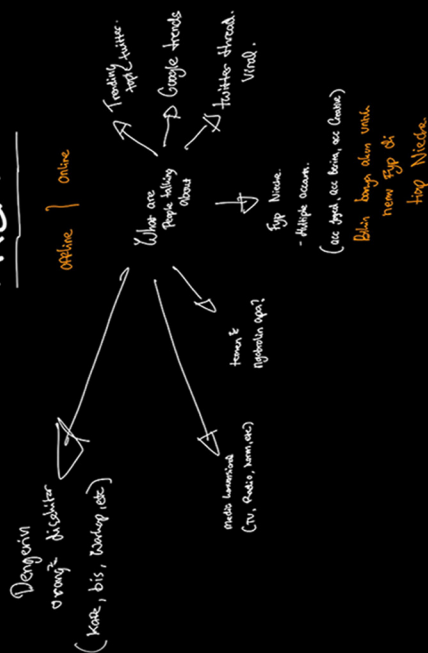 offline } online
What are
People talking
about
Trending
topic twitter.
Google trends
twitter thread
viral.
Fyp Nieche
- Multiple account.
Bikin banyak akun untuk
nemu Fyp di
tiap Nieche
temen²
ngobrolin apa?
Media konvensional
(TV, Radio, koran, etc)
Dengerin
orang² disekitar
(Kafe, bis, Warkop, etc)